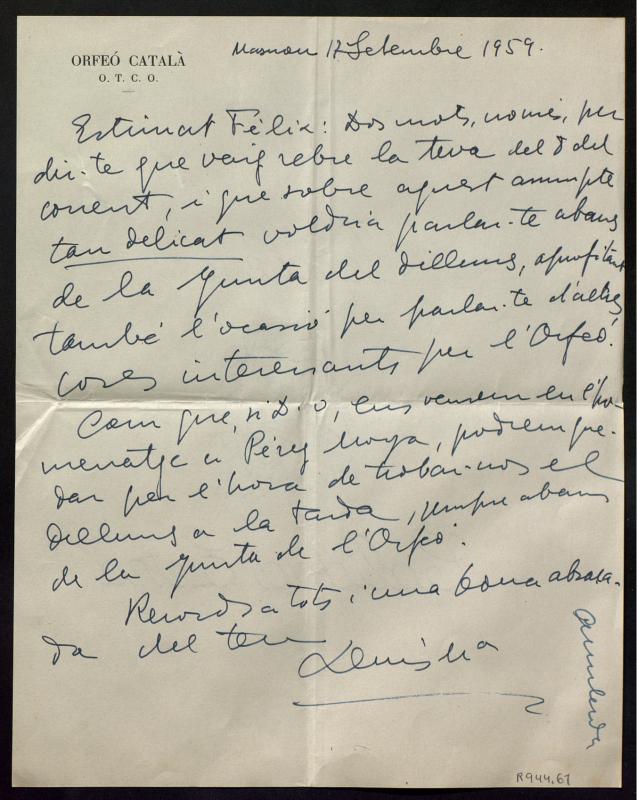 ORFEÓ CATALÀ
O. T. C. O.
Masnou 17 Setembre 1959.
Estimat Fèlix: Dos mots, només, per
dir-te que vaig rebre la teva del 8 del
corrent, i que sobre aquest assumpte
tan delicat voldria parlar-te abans
de la Junta del dilluns, aprofitant
també l'ocasió per parlar-te d'altres
coses interessants per l'Orfeó.
Com que, si D. v, ens veurem en l'ho-
menatge a Pérez Moya, podrem que-
dar per l'hora de trobar-nos el
dilluns a la tarda, sempre abans
de la Junta de l'Orfeó.
Records a tots i una bona abraça-
da del teu
R944.67